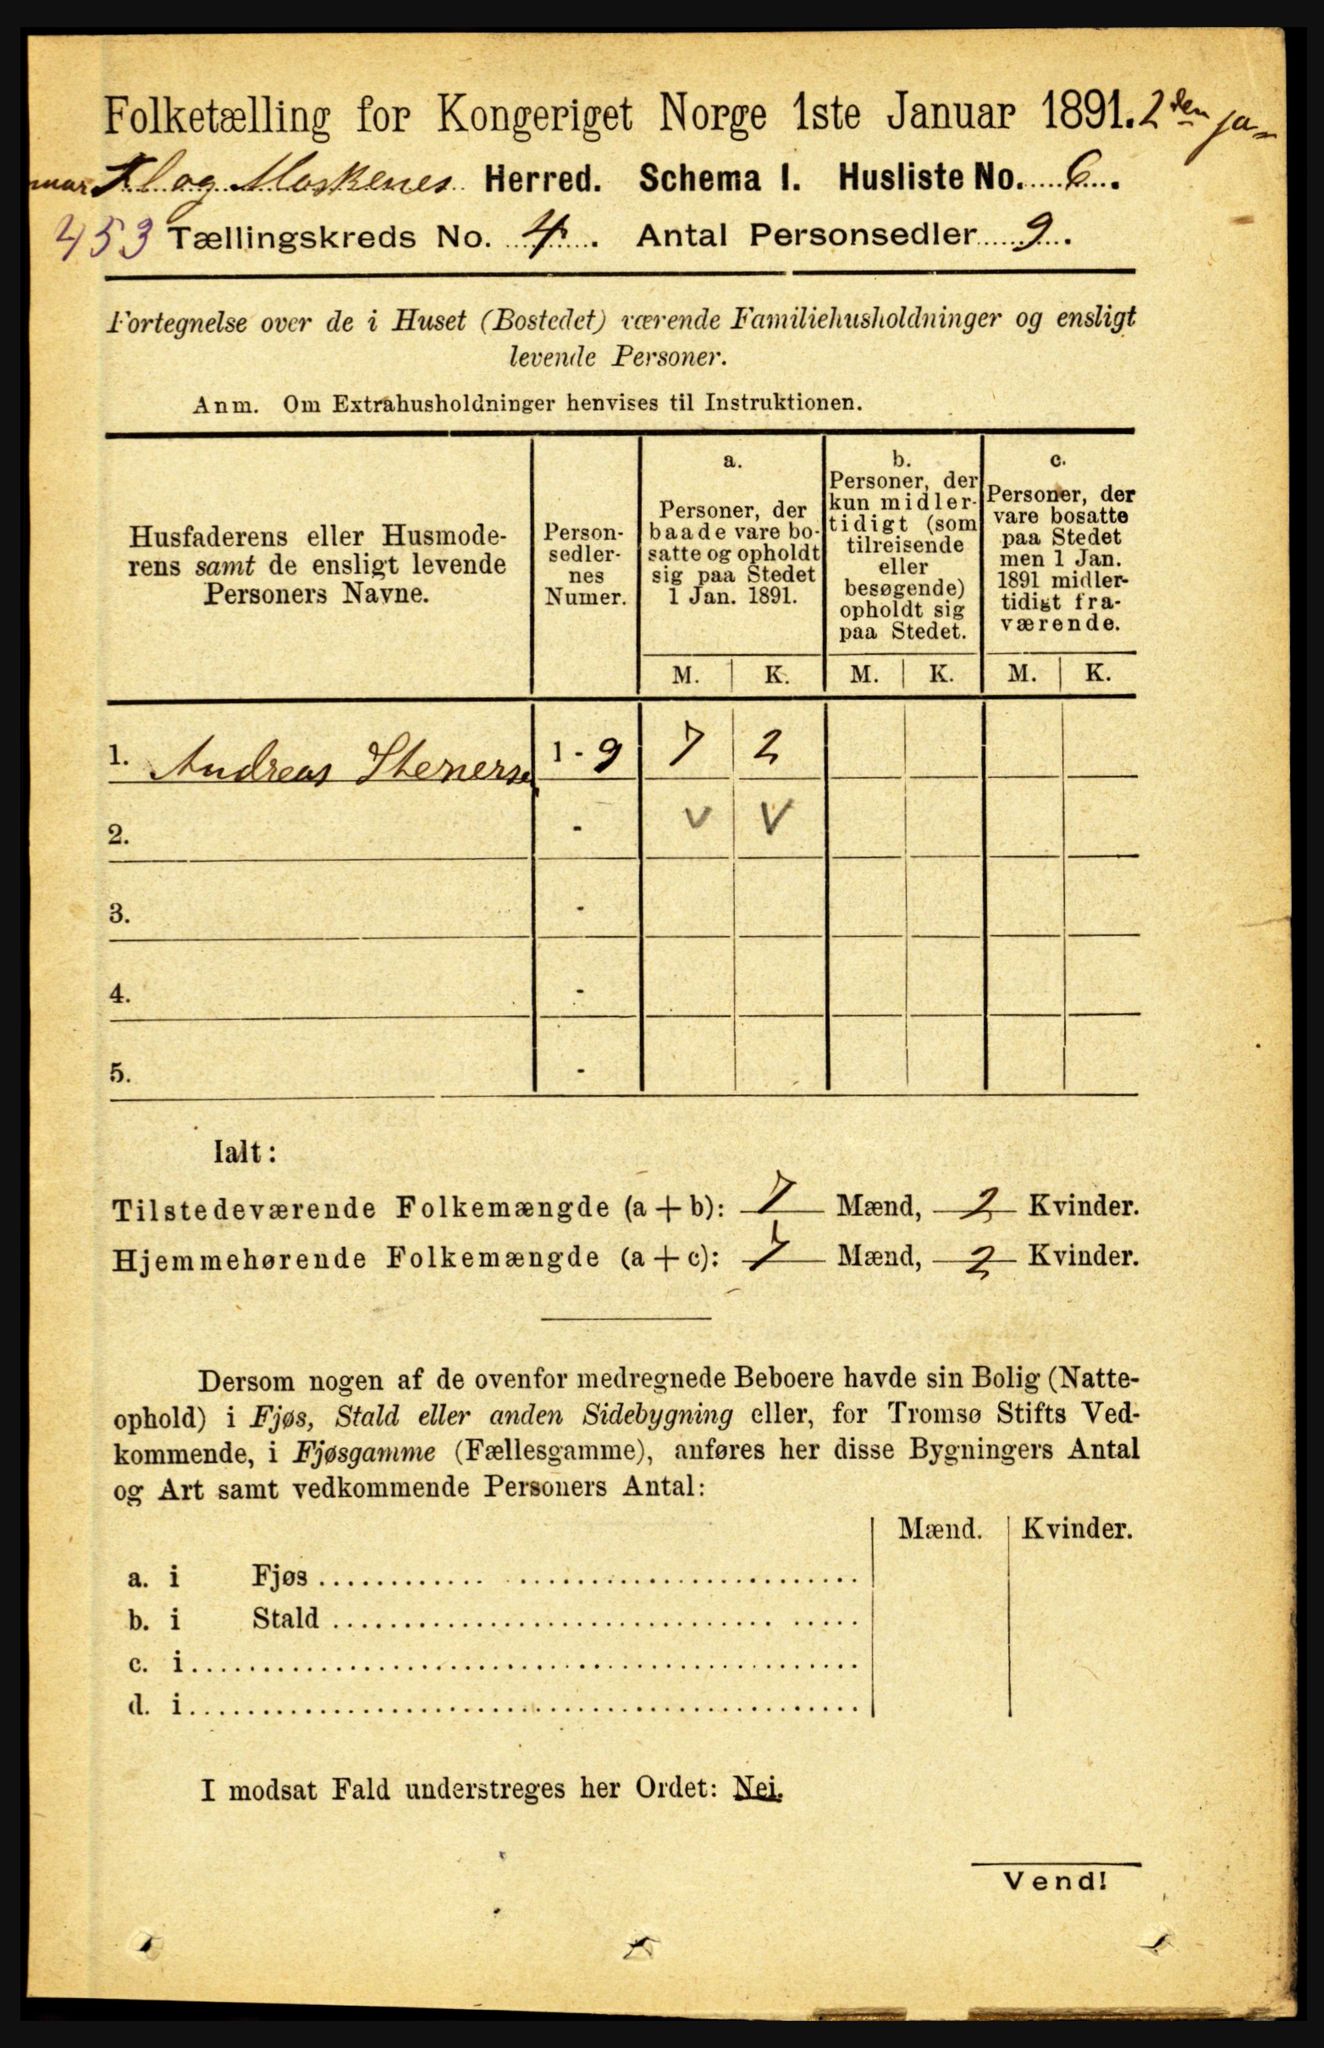 Folketælling for Kongeriget Norge 1ste Januar 1891. 2den ja-
nuar Fl. og Moskenes Herred. Schema I. Husliste No. 6.
453 Tællingskreds No. 4. Antal Personsedler 9.
Fortegnelse over de i Huset (Bostedet) værende Familiehusholdninger og ensligt
levende Personer.
Anm. Om Extrahusholdninger henvises til Instruktionen.
Husfaderens eller Husmode-
rens samt de ensligt levende
Personers Navne.
Person-
sedler-
nes
Numer.
a.
Personer, der
baade vare bo-
satte og opholdt
sig paa Stedet
1 Jan. 1891.
b.
Personer, der
kun midler-
tidigt (som
tilreisende
eller
besøgende)
opholdt sig
paa Stedet.
c.
Personer, der
vare bosatte
paa Stedet
men 1 Jan.
1891 midler-
tidigt fra-
værende.
M. K. M. K. M. K.
1. Andreas Stenersen 1 - 9 7 2
2. - V V
3. -
4. -
5. -
Ialt:
Tilstedeværende Folkemængde (a + b): 7 Mænd, 2 Kvinder.
Hjemmehørende Folkemængde (a + c): 7 Mænd, 2 Kvinder.
Dersom nogen af de ovenfor medregnede Beboere havde sin Bolig (Natte-
ophold) i Fjøs, Stald eller anden Sidebygning eller, for Tromsø Stifts Ved-
kommende, i Fjøsgamme (Fællesgamme), anføres her disse Bygningers Antal
og Art samt vedkommende Personers Antal:
Mænd. Kvinder.
a. i Fjøs
b. i Stald
c. i
d. i
I modsat Fald understreges her Ordet: Nei.
Vend!